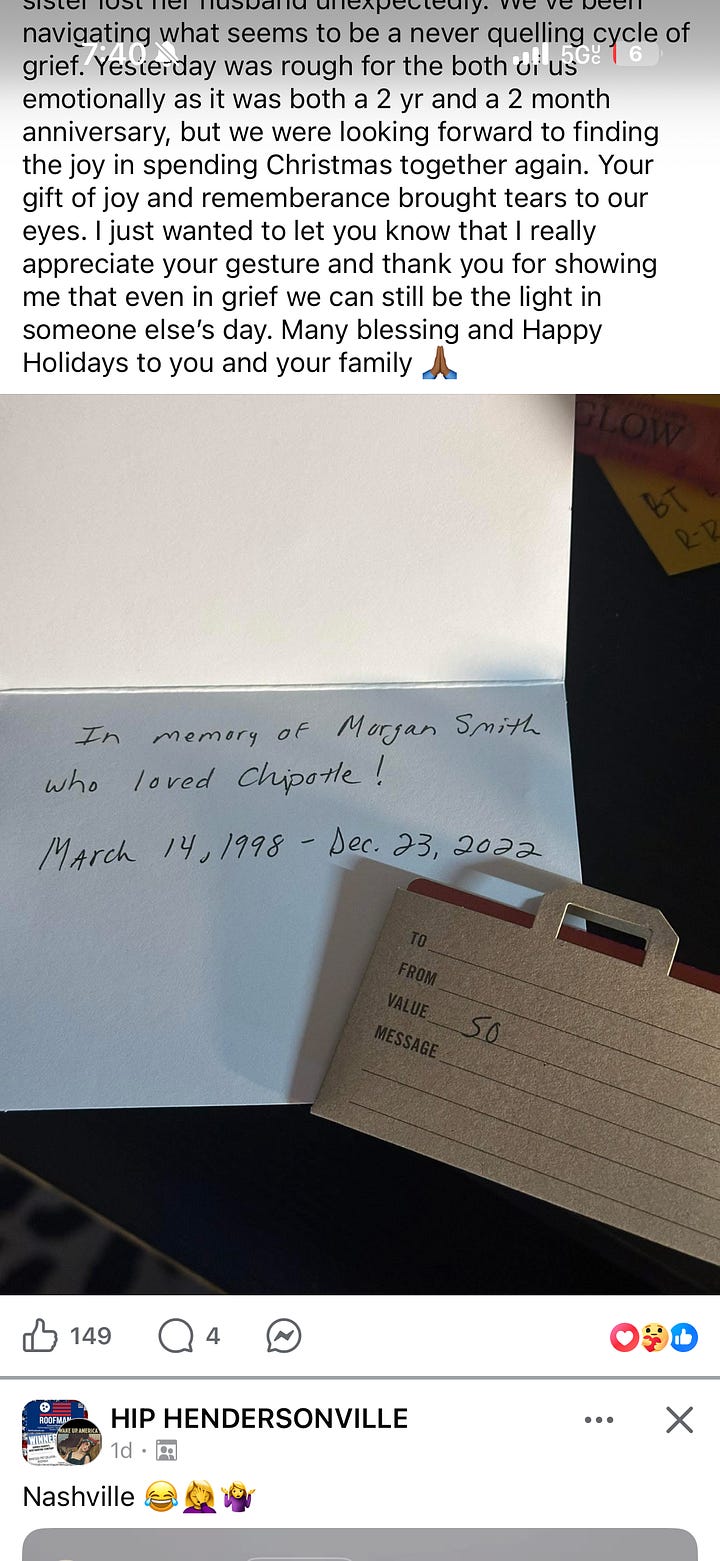 sister lost her husband unexpectedly. We've been
navigating what seems to be a never quelling cycle of
7:40 5G 6
grief. Yesterday was rough for the both of us
emotionally as it was both a 2 yr and a 2 month
anniversary, but we were looking forward to finding
the joy in spending Christmas together again. Your
gift of joy and rememberance brought tears to our
eyes. I just wanted to let you know that I really
appreciate your gesture and thank you for showing
me that even in grief we can still be the light in
someone else's day. Many blessing and Happy
Holidays to you and your family 🙏🏾
GLOW
BT
In memory of Morgan Smith
who loved Chipotle!
March 14, 1998 - Dec. 23, 2022
TO
FROM
VALUE 50
MESSAGE
149 4
ROOFMAN
WINNER
WAKE UP AMERICA
HIP HENDERSONVILLE
1d ·
Nashville 😂🤦‍♀️🤷‍♀️